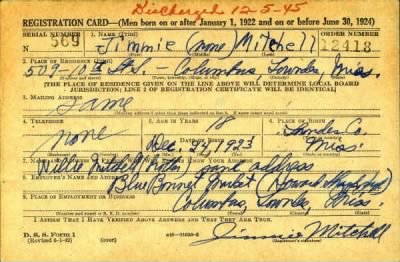 Discharged 12-5-45
REGISTRATION CARD—(Men born on or after January 1, 1922 and on or before June 30, 1924)
SERIAL NUMBER 1. NAME (Print) ORDER NUMBER
569 Jimmie (none) Mitchell 12418
2. PLACE OF RESIDENCE (Print)
509-10th St. - Columbus, Lowndes, Miss.
(THE PLACE OF RESIDENCE GIVEN ON THE LINE ABOVE WILL DETERMINE LOCAL BOARD
JURISDICTION; LINE 2 OF REGISTRATION CERTIFICATE WILL BE IDENTICAL)
3. MAILING ADDRESS
Same
4. TELEPHONE 5. AGE IN YEARS 6. PLACE OF BIRTH
none 18 Lowndes Co.
DATE OF BIRTH
Dec. 24, 1923 Miss.
7. WHO WILL ALWAYS KNOW YOUR ADDRESS
Mitchell same address
8. EMPLOYER'S NAME AND ADDRESS
Blue Bonnet
9. PLACE OF EMPLOYMENT OR BUSINESS
Columbus, Lowndes, Miss.
I AFFIRM THAT I HAVE VERIFIED ABOVE ANSWERS AND THAT THEY ARE TRUE.
D. S. S. Form 1
(Revised 6-1-42)
Jimmie Mitchell
(Registrant's signature)